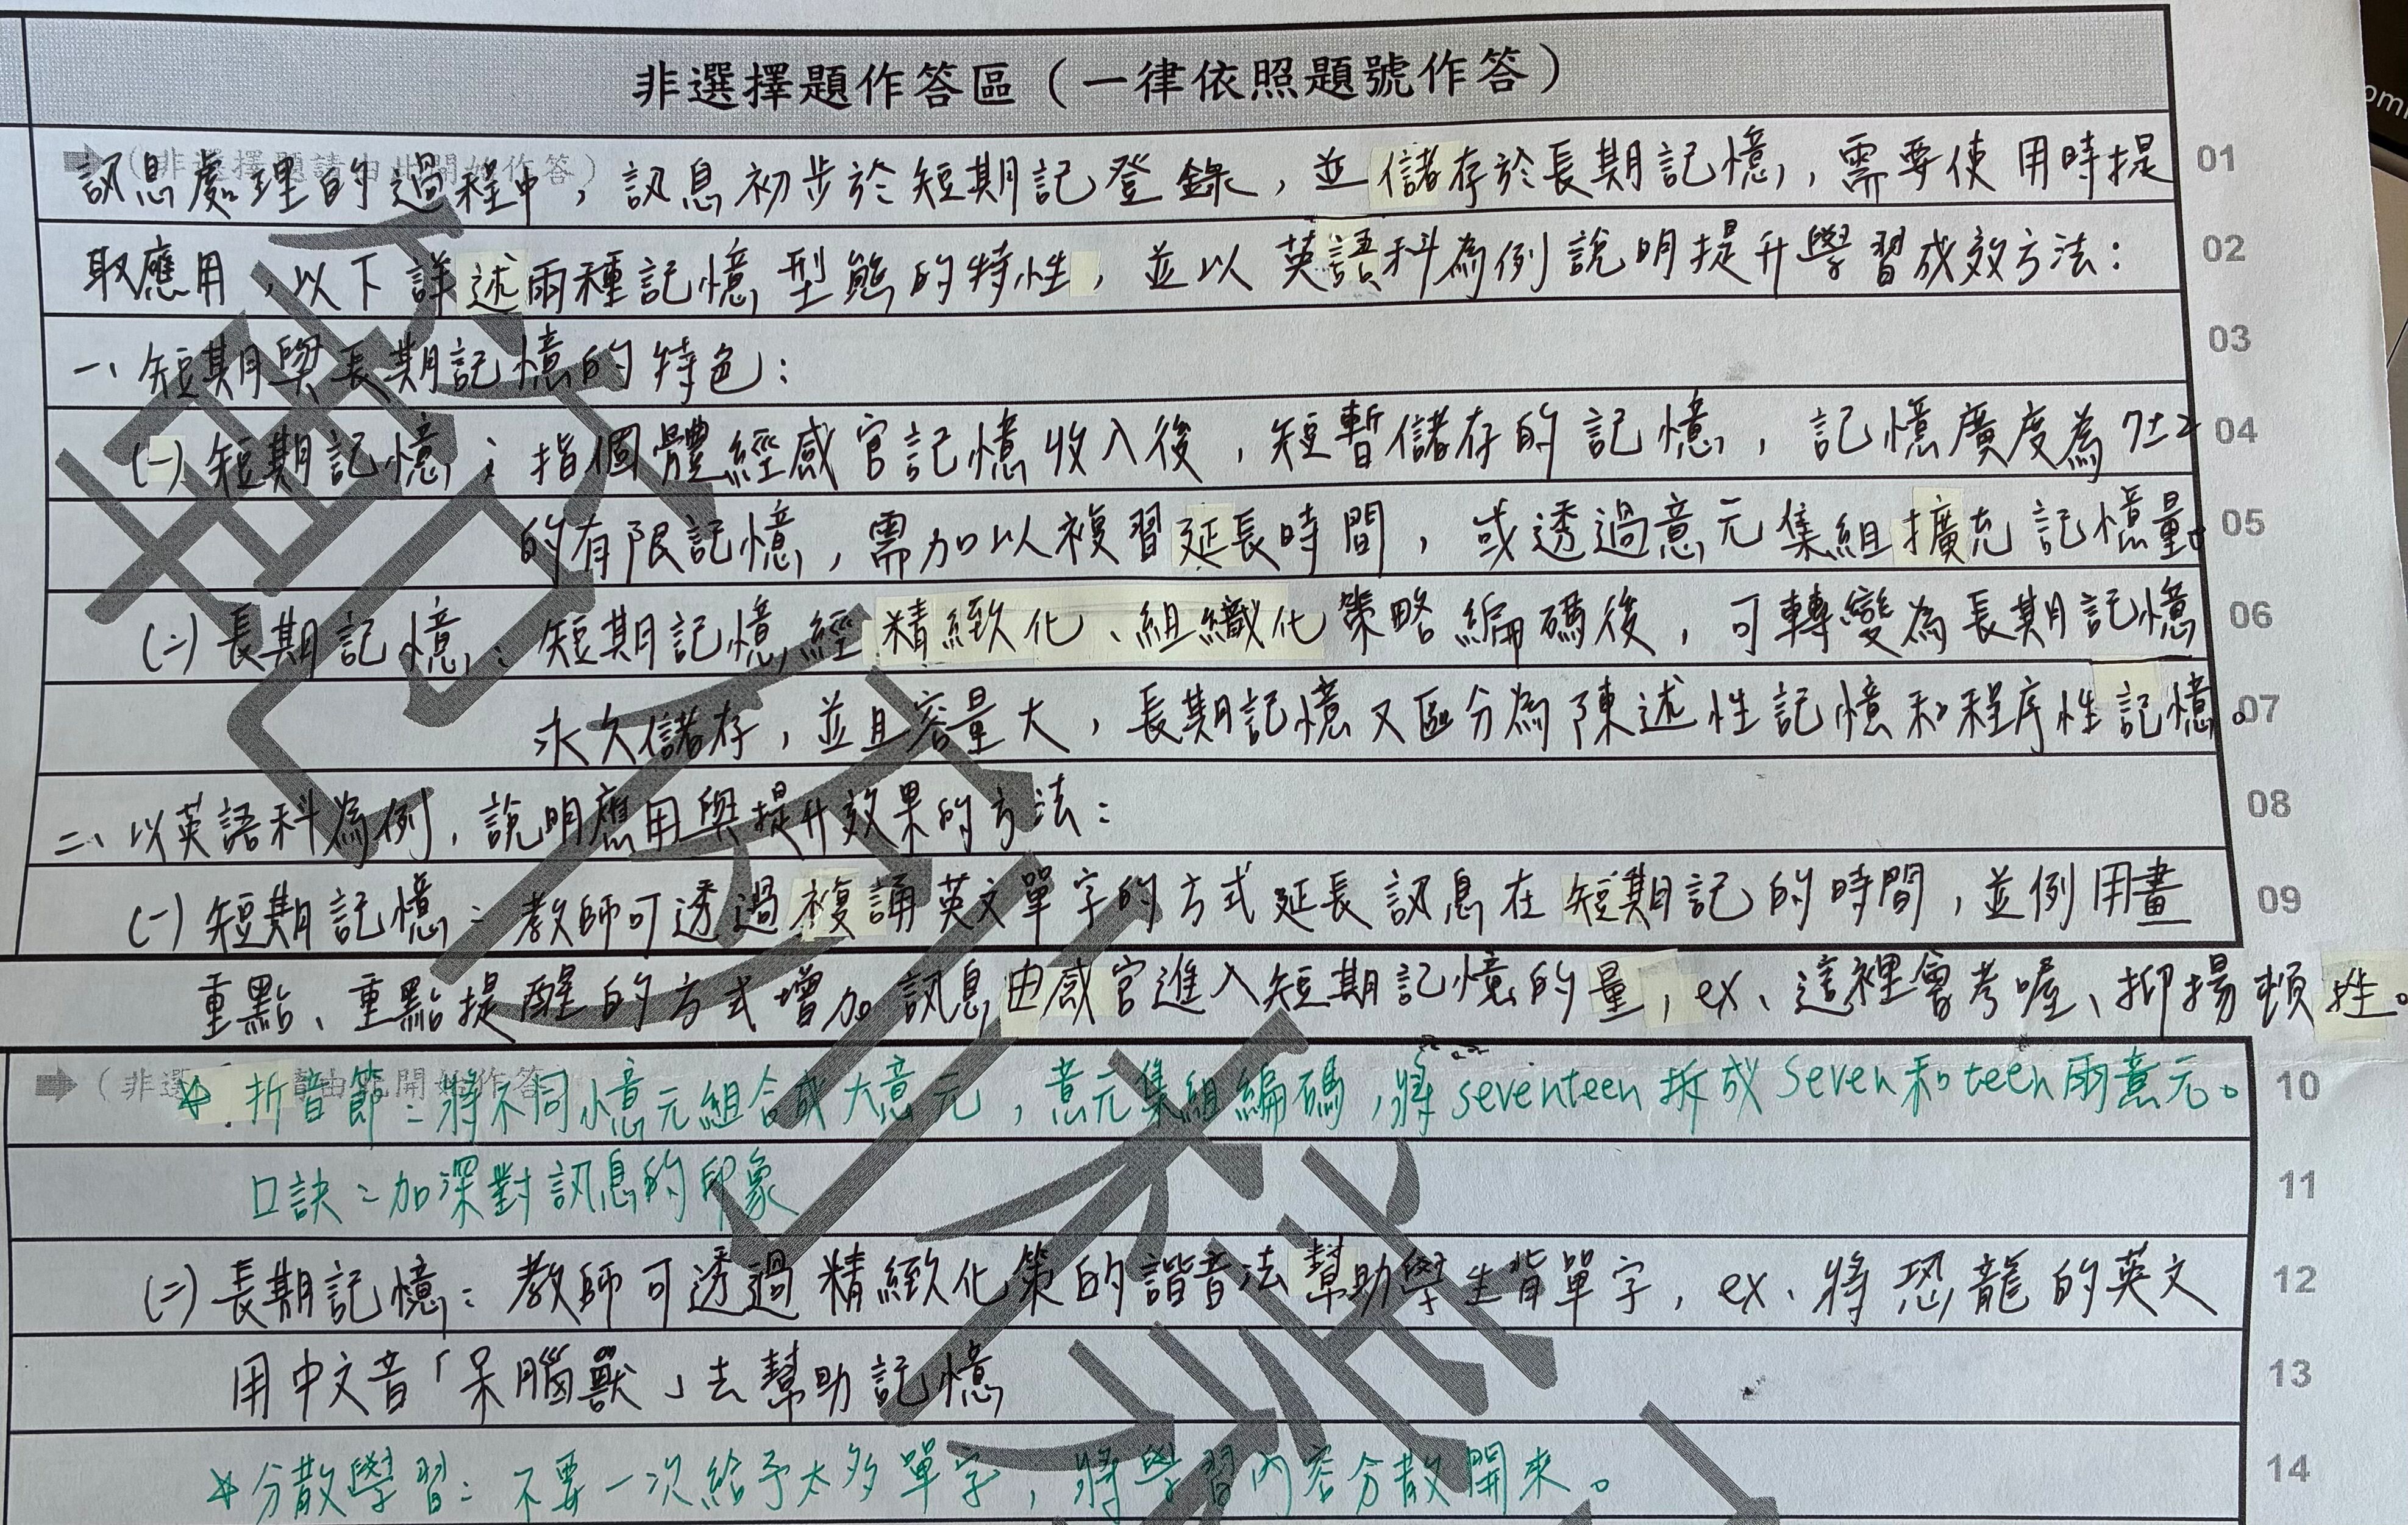 非選擇題作答區（一律依照題號作答）
➡（非選擇題請由此開始作答）
訊息處理的過程中，訊息初步於短期記登錄，並儲存於長期記憶，需要使用時提 01
取應用，以下詳述兩種記憶型態的特性，並以英語科為例說明提升學習成效方法： 02
一、短期與長期記憶的特色： 03
(一) 短期記憶：指個體經感官記憶收入後，短暫儲存的記憶，記憶廣度為7±2 04
的有限記憶，需加以複習延長時間，或透過意元集組擴充記憶量。 05
(二) 長期記憶：短期記憶經精緻化、組織化策略編碼後，可轉變為長期記憶 06
永久儲存，並且容量大，長期記憶又區分為陳述性記憶和程序性記憶。 07
二、以英語科為例，說明應用與提升效果的方法： 08
(一) 短期記憶：教師可透過複誦英文單字的方式延長訊息在短期記的時間，並例用畫 09
重點、重點提醒的方式增加訊息由感官進入短期記憶的量，ex、這裡會考喔、抑揚頓挫。
➡（非選擇題請由此開始作答
☆ 折音節：將不同小意元組合成大意元，意元集組編碼，將seventeen拆成seven和teen兩意元。 10
口訣：加深對訊息的印象 11
(二) 長期記憶：教師可透過精緻化策的諧音法幫助學生背單字，ex、將恐龍的英文 12
用中文音「呆腦獸」去幫助記憶 13
☆分散學習：不要一次給予太多單字，將學習內容分散開來。 14